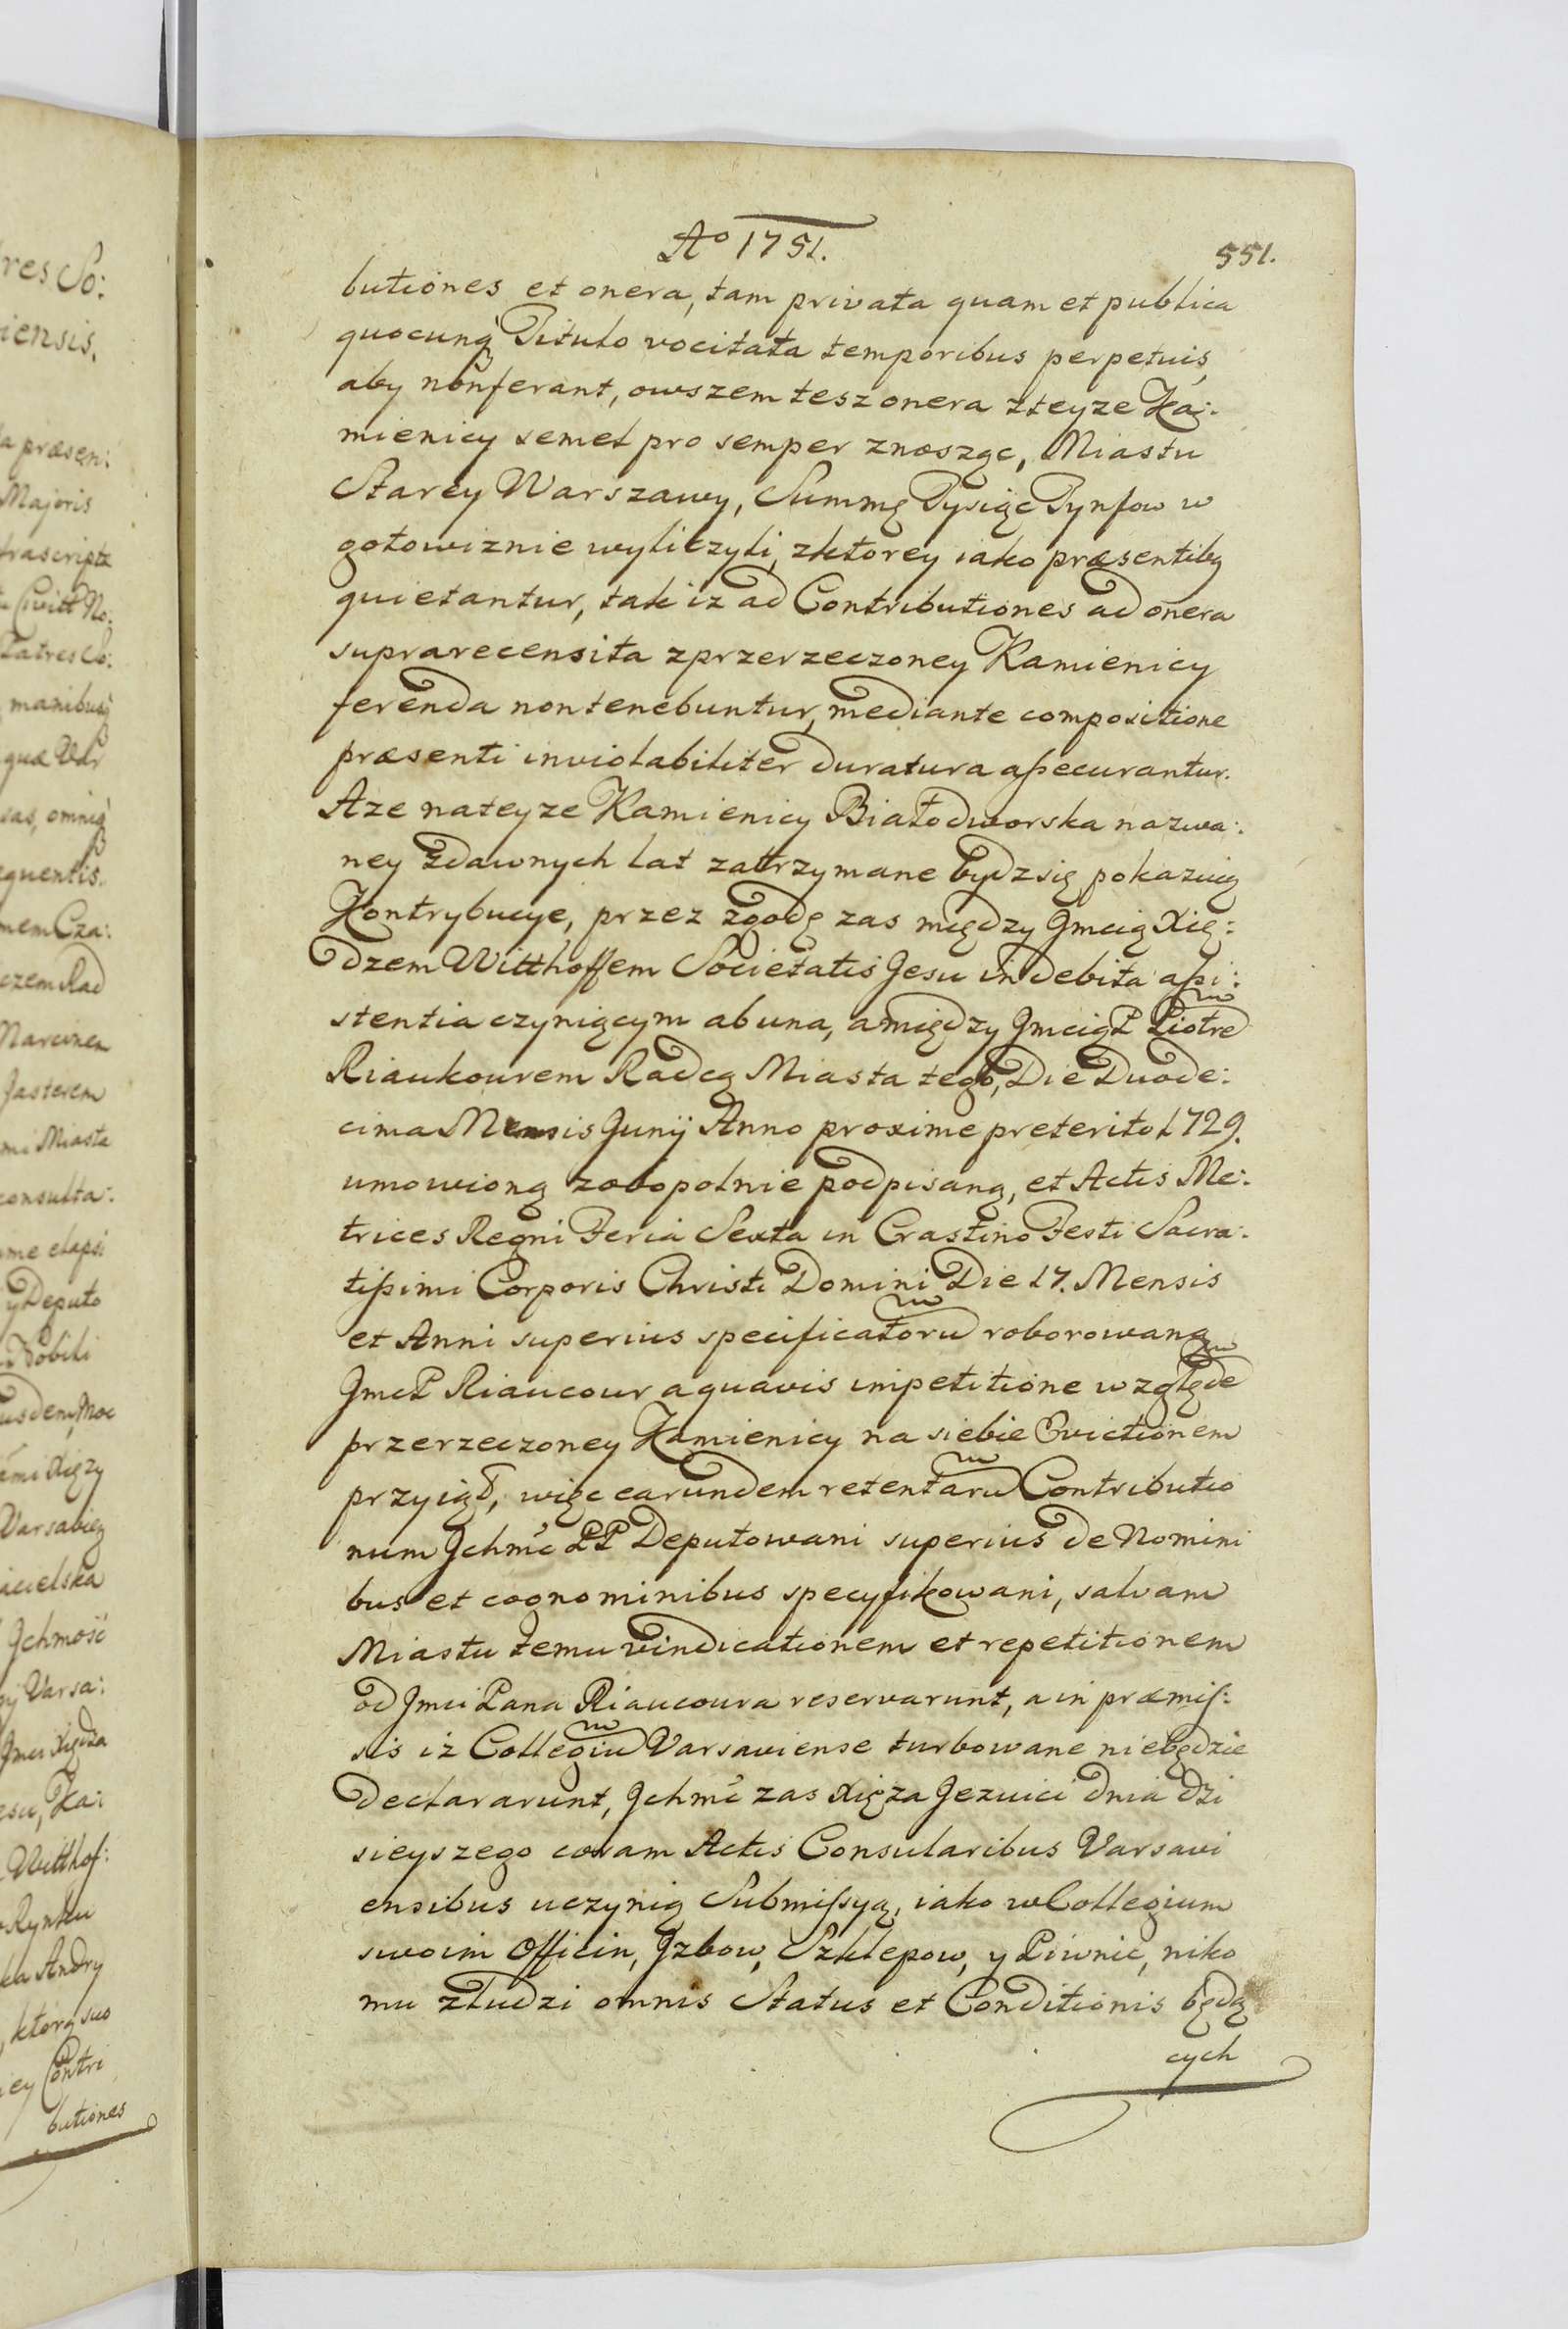 Ao 1751.
551.
butiones et onera, tam privata quam et publica
quocunq Titulo vocitata temporibus perpetuis,
aby non ferant, owszem tesz onera z teyze Ka:
mienicy semel pro semper znosząc, Miastu
Starey Warszawy, Summę Tysiąc Tynfow w
gotowiznie wyliczyli, z ktorey iako præsentibg
quietantur, tak iz ad Contributiones ad onera
suprarecensita z przerzeczoney Kamienicy
ferenda non tenebuntur, mediante compositione
præsenti inviolabiliter duratura aßecurantur.
Aze na teyze Kamienicy Białodworska nazwa:
ney zdawnych lat zatrzymane bydz się pokazuią
Kontrybucye, przez zgodę zas między Jmcią Xię:
dzem Witthoffem Societatis Jesu in debita aßi:
stentia czyniącym ab una, a między Jmcią P Piotrem
Riaukourem Radcą Miasta tego, Die Duode:
cima Mensis Junij Anno proxime preterito 1729.
umowioną zobopolnie podpisaną, et Actis Me:
trices Regni Feria Sexta in Crastino Festi Sacra:
tißimi Corporis Christi Domini Die 17. Mensis
et Anni superius specificatorum roborowaną
Jmc P Riaucour a quavis impetitione względem
przerzeczoney Kamienicy na siebie Evictionem
przyiął, więc earundem retentarum Contributio
num Jchmc PP Deputowani superius de Nomini
bus et cognominibus specyfikowani, salvam
Miastu temu vindicationem et repetitionem
od Jmci Pana Riaucoura reservarunt, a in præmis:
sis iz Collegium Varsaviense turbowane niebędzie
declararunt, Jchmc zas Xięza Jezuici dnia dzi
sieyszego coram Actis Consularibus Varsavi
ensibus uczynią Submissyą, iako w Collegium
swoim Officin, Jzbow, Szklepow, y Piwnic, niko
mu z ludzi omnis Status et Conditionis będą
cych